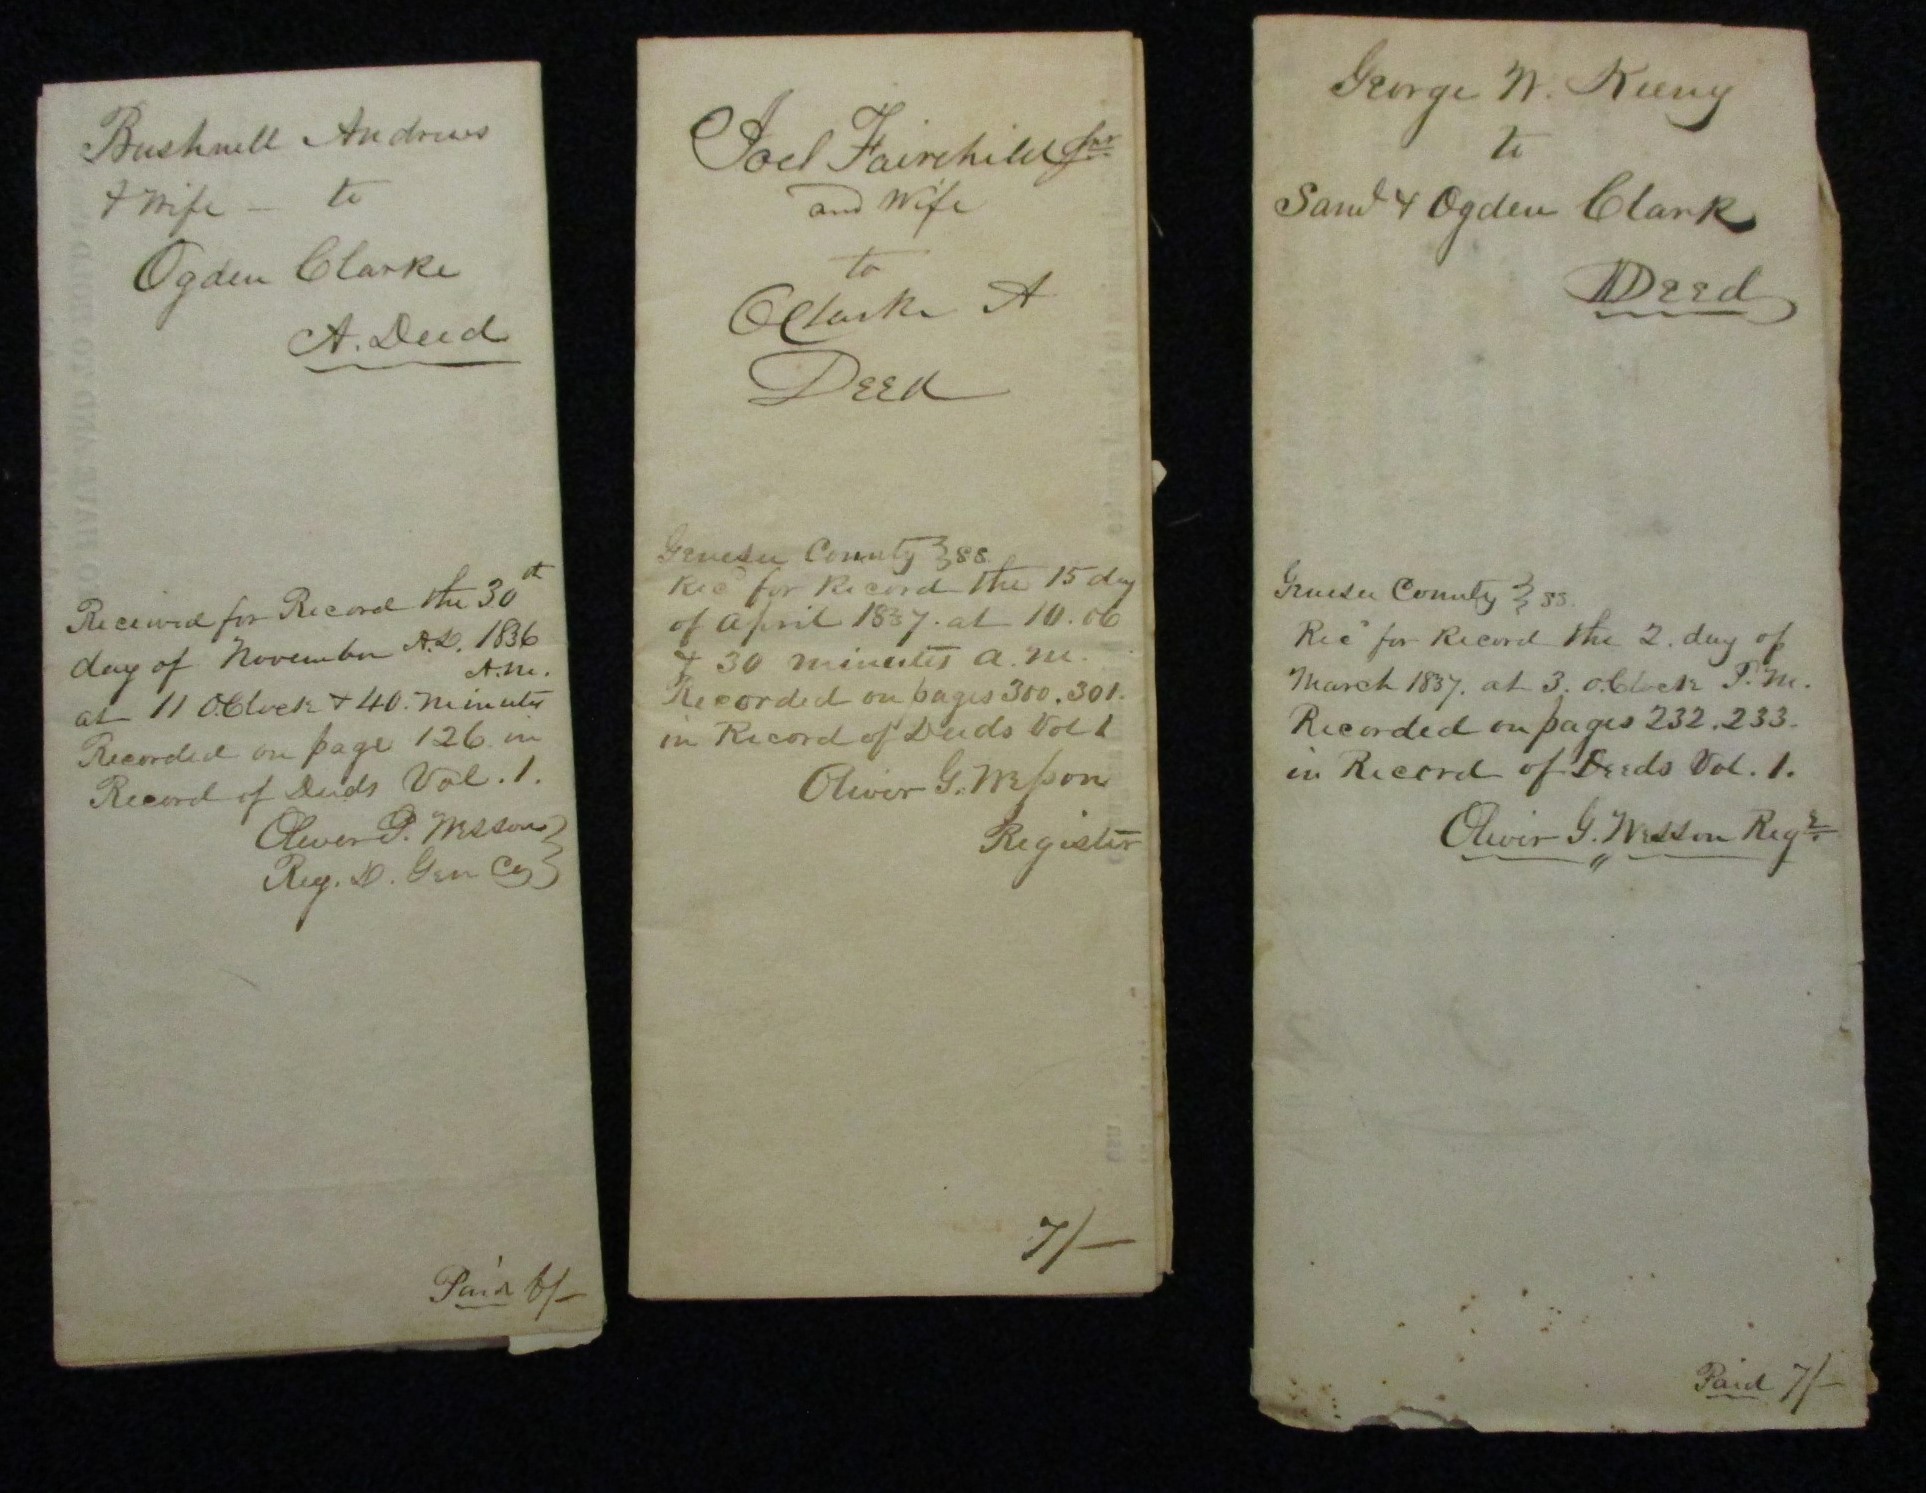 Bushnell Andrews
& Wife — to
Ogden Clarke
A. Deed
Received for Record the 30th
day of November A.D. 1836
A.M.
at 11 O.Clock & 40. Minutes
Recorded on page 126 in
Record of Deeds Vol. 1.
Oliver P. Wesson
Reg. D. Gen Co
Paid 6/-
Joel Fairchild Jnr
and Wife
to
O Clarke A
Deed
Genesee County } ss
Rec'd for Record the 15 day
of April 1837. at 10.
& 30 minutes a.m.
Recorded on pages 300.301.
in Record of Deeds Vol 1
Oliver G. Wesson
Register
7/-
George W.
to
Saml & Ogden Clark
Deed
Genesee County } ss.
Rec'd for Record the 2. day of
March 1837. at 3. o.Clock P.M.
Recorded on pages 232.233.
in Record of Deeds Vol. 1.
Oliver G. Wesson Regr
Paid 7/-
TO HAVE AND TO HOLD